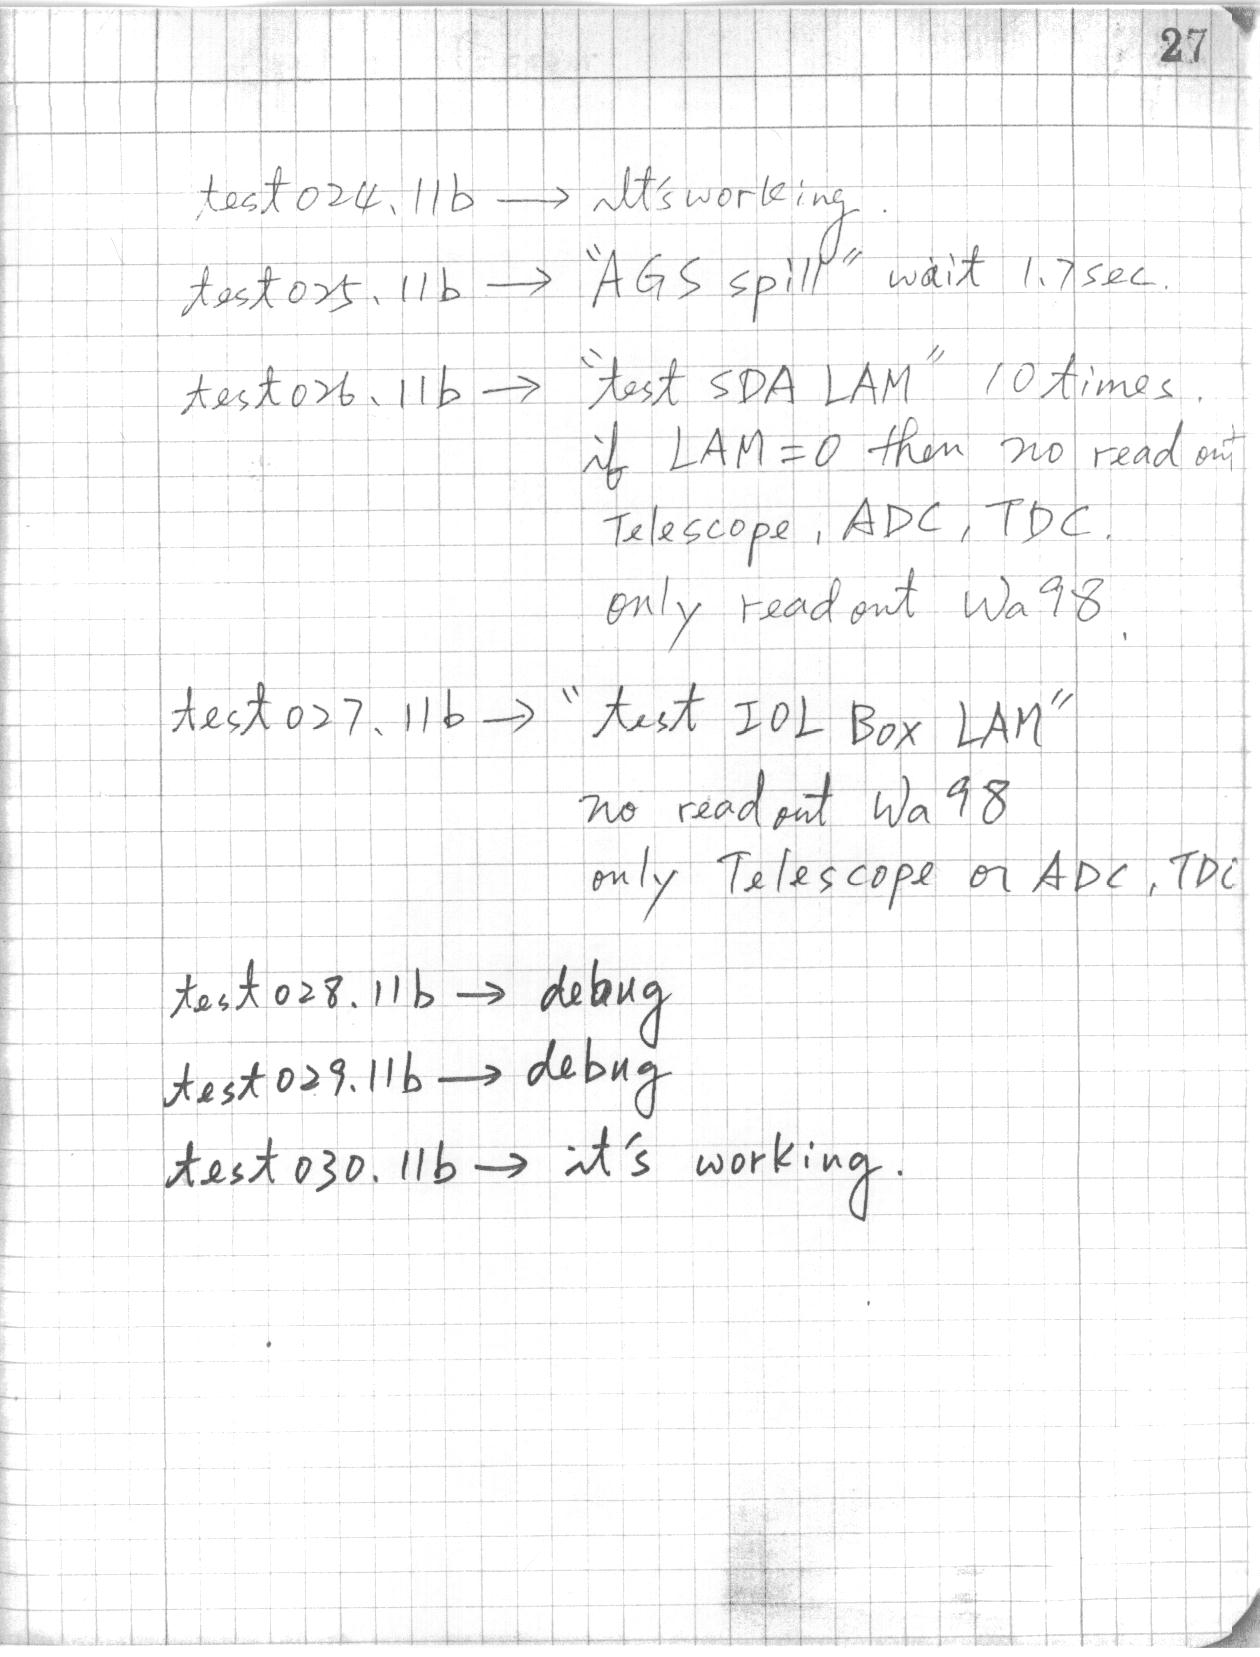 27
test024.11b → It's working.
test025.11b → "AGS spill" wait 1.7sec.
test026.11b → "test SDA LAM" 10 times.
if LAM=0 then no read out
Telescope, ADC, TDC.
only read out Wa98.
test027.11b → "test IOL Box LAM"
no read out Wa98
only Telescope or ADC, TDC
test028.11b → debug
test029.11b → debug
test030.11b → it's working.